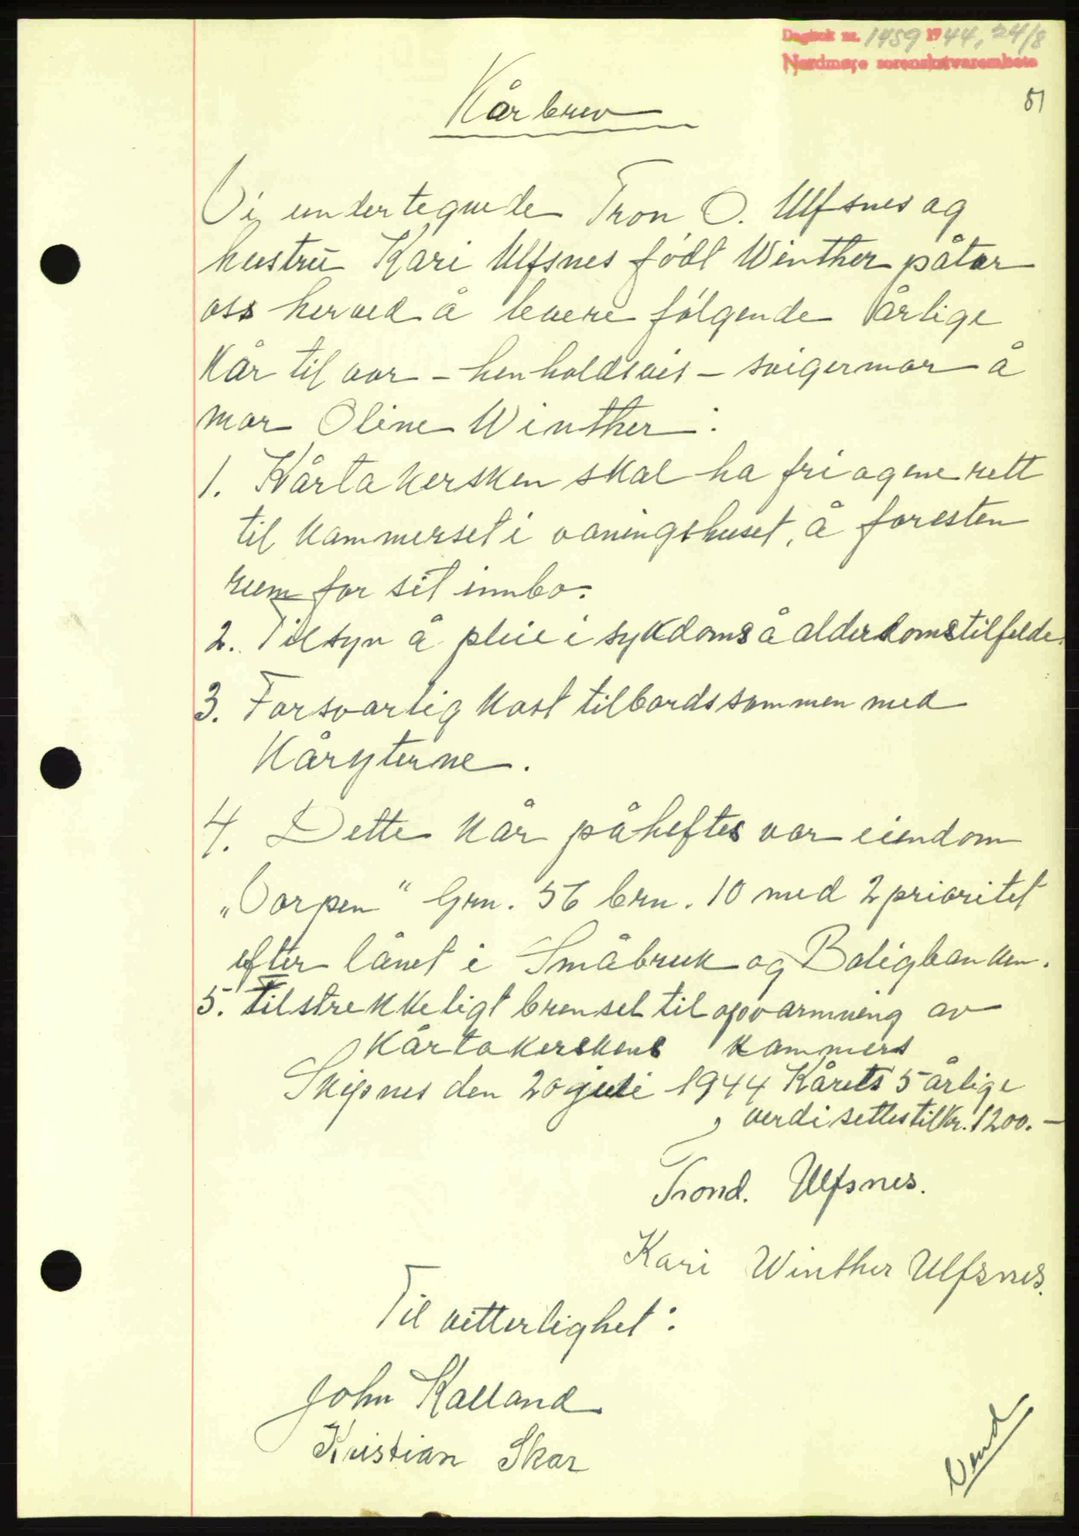 Dagbok nr. 1459 1944, 24/8
Nordmøre sorenskriverembete
51
Kårbrev
Vi undertegnede Tron O. Ulfsnes og
hustru Kari Ulfsnes født Winther påtar
oss herved å levere følgende årlige
kår til vor - henholdsvis - svigermor å
mor Oline Winther:
1. Kårtakersken skal ha fri og ene rett
til kammerset i våningshuset, å foresten
rum for sit innbo.
2. Tilsyn å pleie i sykdoms å alderdomstilfelde.
3. Forsvarlig kost tilbords sammen med
Kåryterne.
4. Dette kår påheftes vor eiendom
„Vorpen" Grn. 56 brn. 10 med 2 prioritet
efter lånet i Småbruk og Boligbanken.
5. Tilstrekkeligt brensel til opvarmning av
Kårtakerskens kammers
Skipnes den 20 juli 1944 Kårets 5 årlige
verdi settes til Kr. 1200.-
Trond. Ulfsnes.
Kari Winther Ulfsnes.
Til vitterlighet:
John Kalland
Kristian Skar
Vend